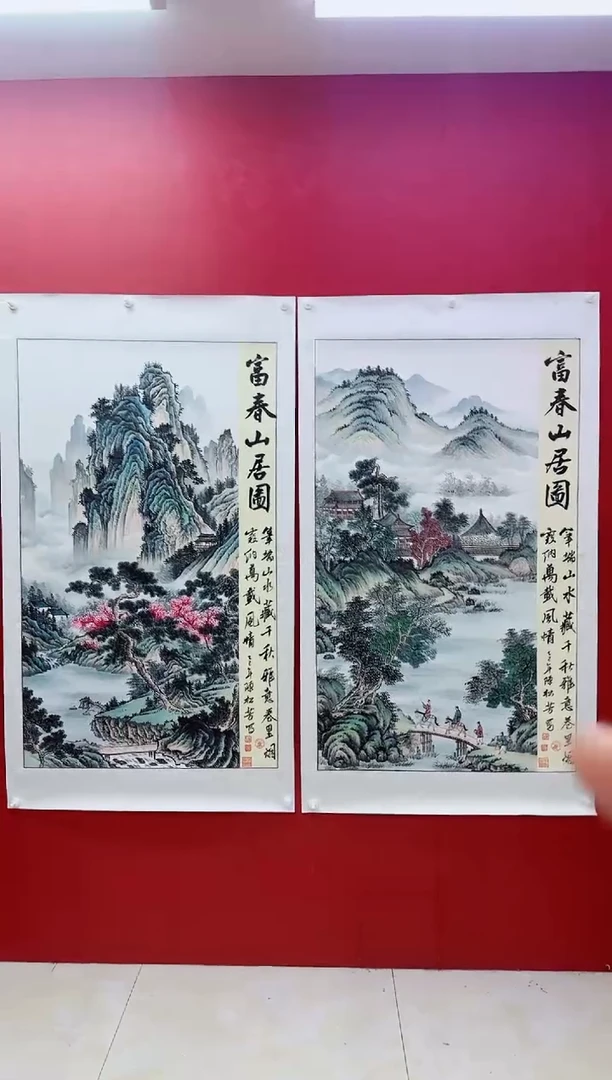 富春山居圖
筆端山水藏千秋雅意卷里烟
霞伯萬載風情
富春山居圖
筆端山水藏千秋雅意卷里烟
霞伯萬載風情